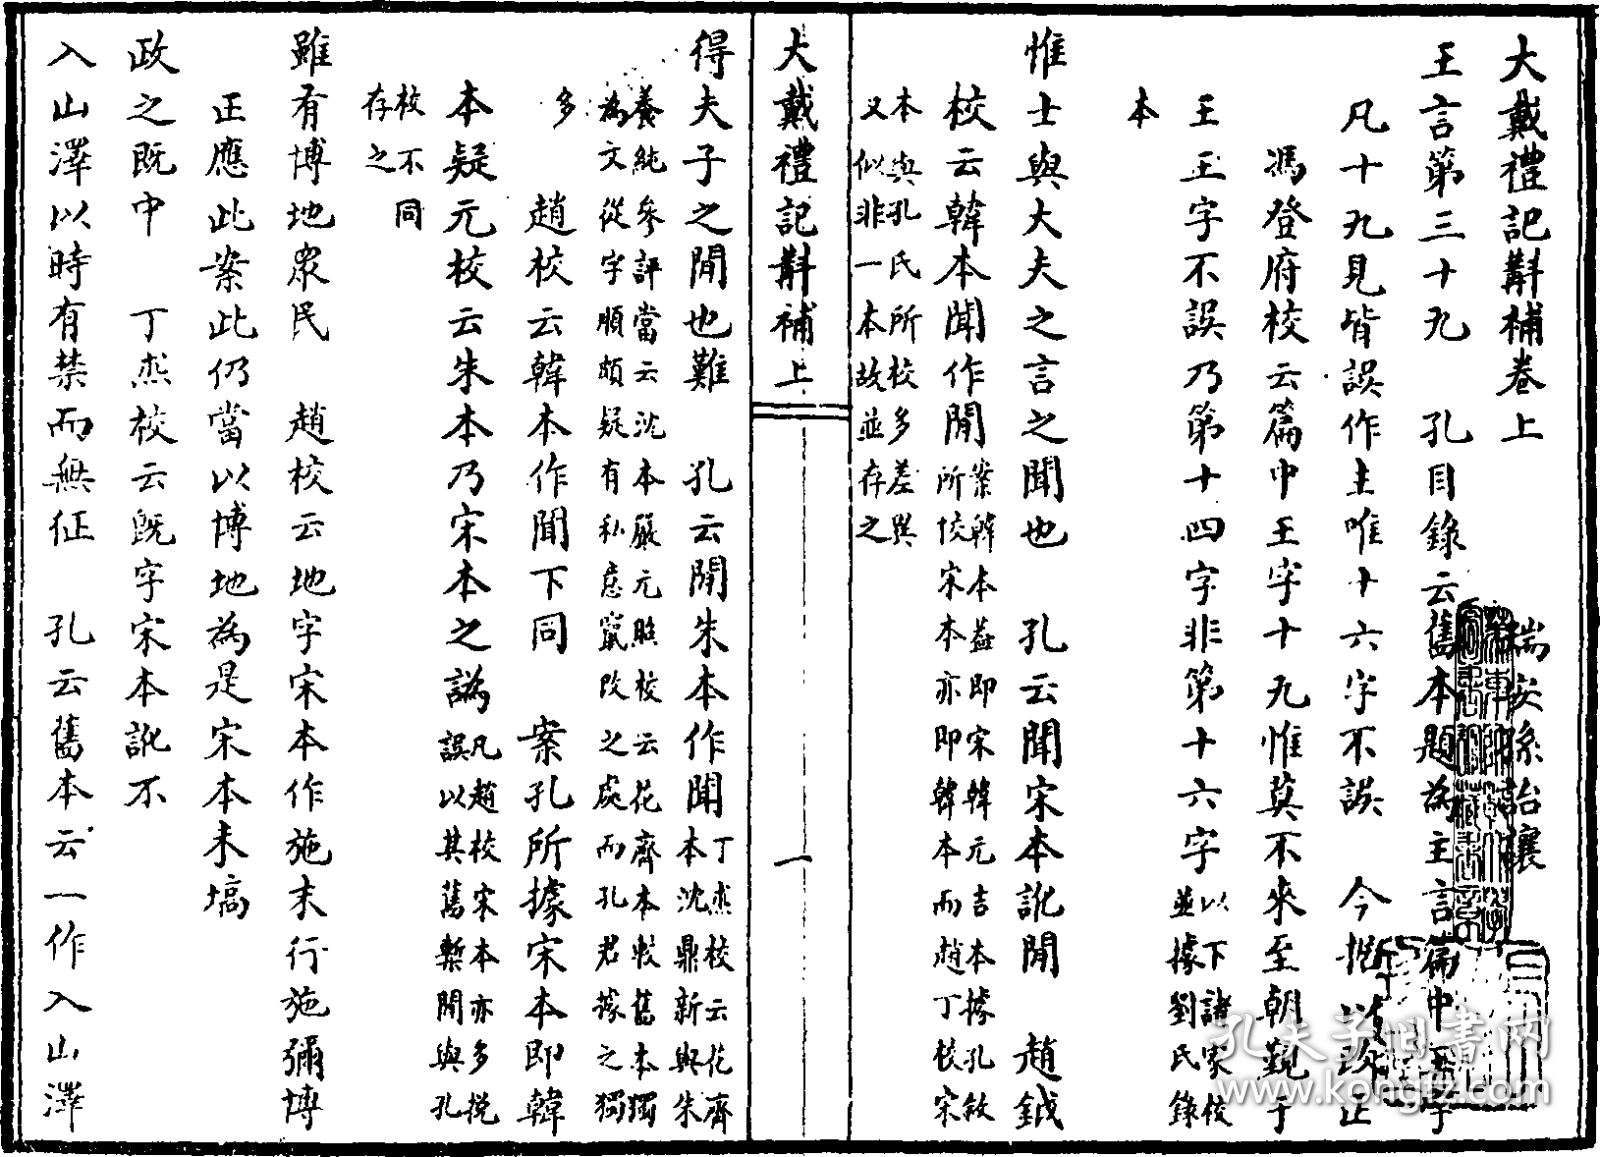 大戴禮記斠補卷上 瑞安孫詒讓
王言第三十九 孔目錄云舊本題為主言篇中王字
凡十九見皆誤作主唯十六字不誤 今据以改正
馮登府校云篇中王字十九惟莫不來至朝覲于
王王字不誤乃第十四字非第十六字
以下諸家校
並據劉氏錄
本
惟士與大夫之言之聞也 孔云聞宋本訛閒 趙鉞
校云韓本聞作閒
案韓本蓋即宋韓元吉本據孔敘
所校宋本亦即韓本而趙丁校宋
本與孔氏所校多差異
又似非一本故並存之
大戴禮記斠補上
一
得夫子之閒也難 孔云閒朱本作聞
丁杰校云花齋
本沈鼎新與朱
養純參評當云沈本嚴元照校云花齋本較舊本獨
為文從字順頗疑有私意竄改之處而孔君據之獨
多
趙校云韓本作聞下同 案孔所據宋本即韓
本疑元校云朱本乃宋本之譌
凡趙校宋本亦多挩
誤以其舊槧閒與孔
校不同
存之
雖有博地衆民 趙校云地字宋本作施末行施彌博
正應此案此仍當以博地為是宋本未塙
政之既中 丁杰校云既字宋本訛不
入山澤以時有禁而無征 孔云舊本云一作入山澤
孔夫子旧书网
www.kongfz.com